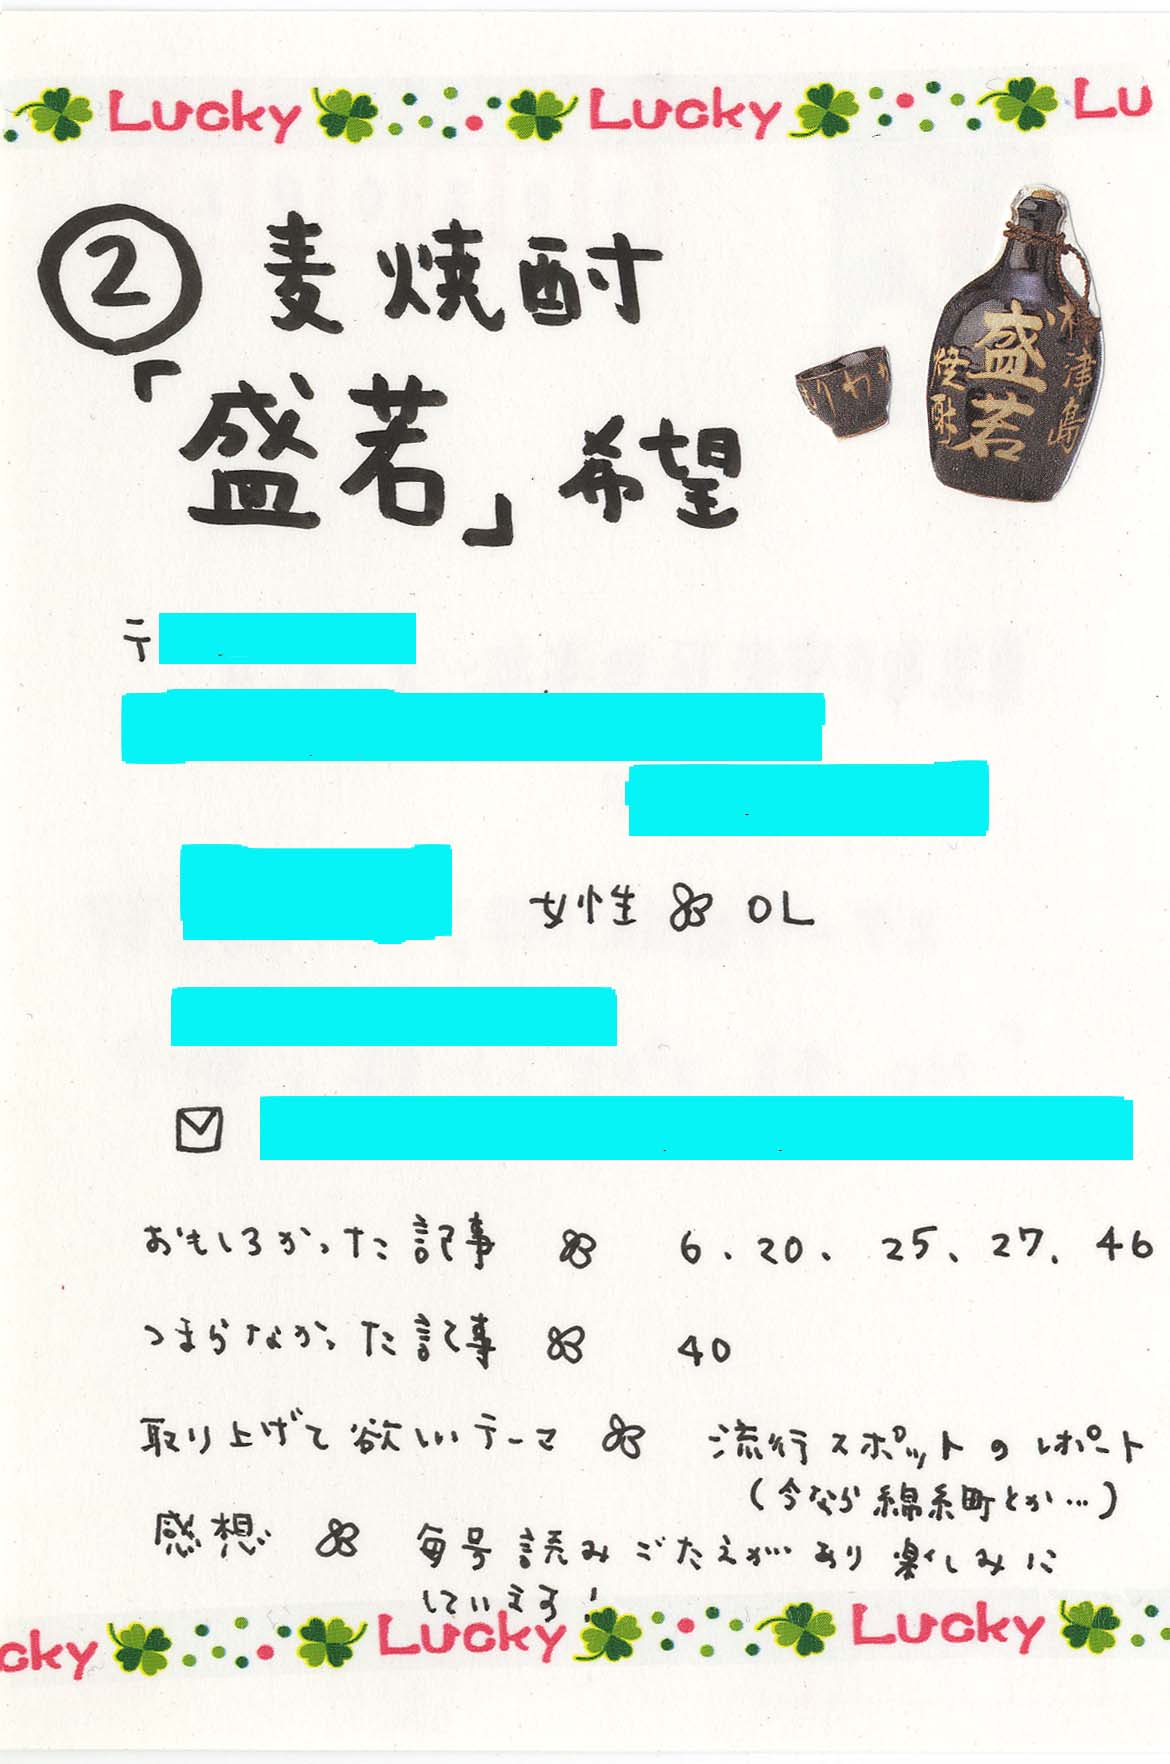 Lucky Lucky Lu
② 麦焼酎
「盛若」希望
神津島
盛若
焼酎
もりわか
〒
女性 OL
おもしろかった記事 6、20、25、27、46
つまらなかった記事 40
取り上げて欲しいテーマ 流行スポットのレポート
(今なら錦糸町とか…)
感想 毎号読みごたえがあり楽しみに
しています!
cky Lucky Lucky